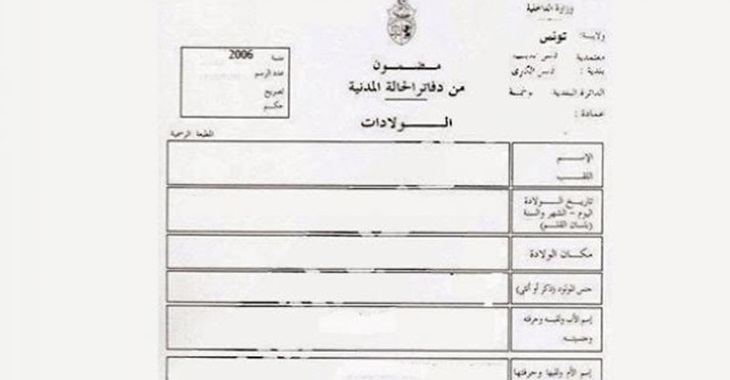 وزارة الداخلية
ولاية: تونس
معتمدية
بلدية :
الدائرة البلدية
عمادة :
مضمون
من دفاتر الحالة المدنية
الولادات
سنة 2006
عدد الرسم
تصريح
حكم
المطبعة الرسمية
الإسم
اللقب
تاريخ الولادة
اليوم - الشهر والسنة
(بلسان القلم)
مكان الولادة
جنس المولود (ذكر أو أنثى)
إسم الأب ولقبه وحرفته
وجنسيته
إسم الأم ولقبها وحرفتها